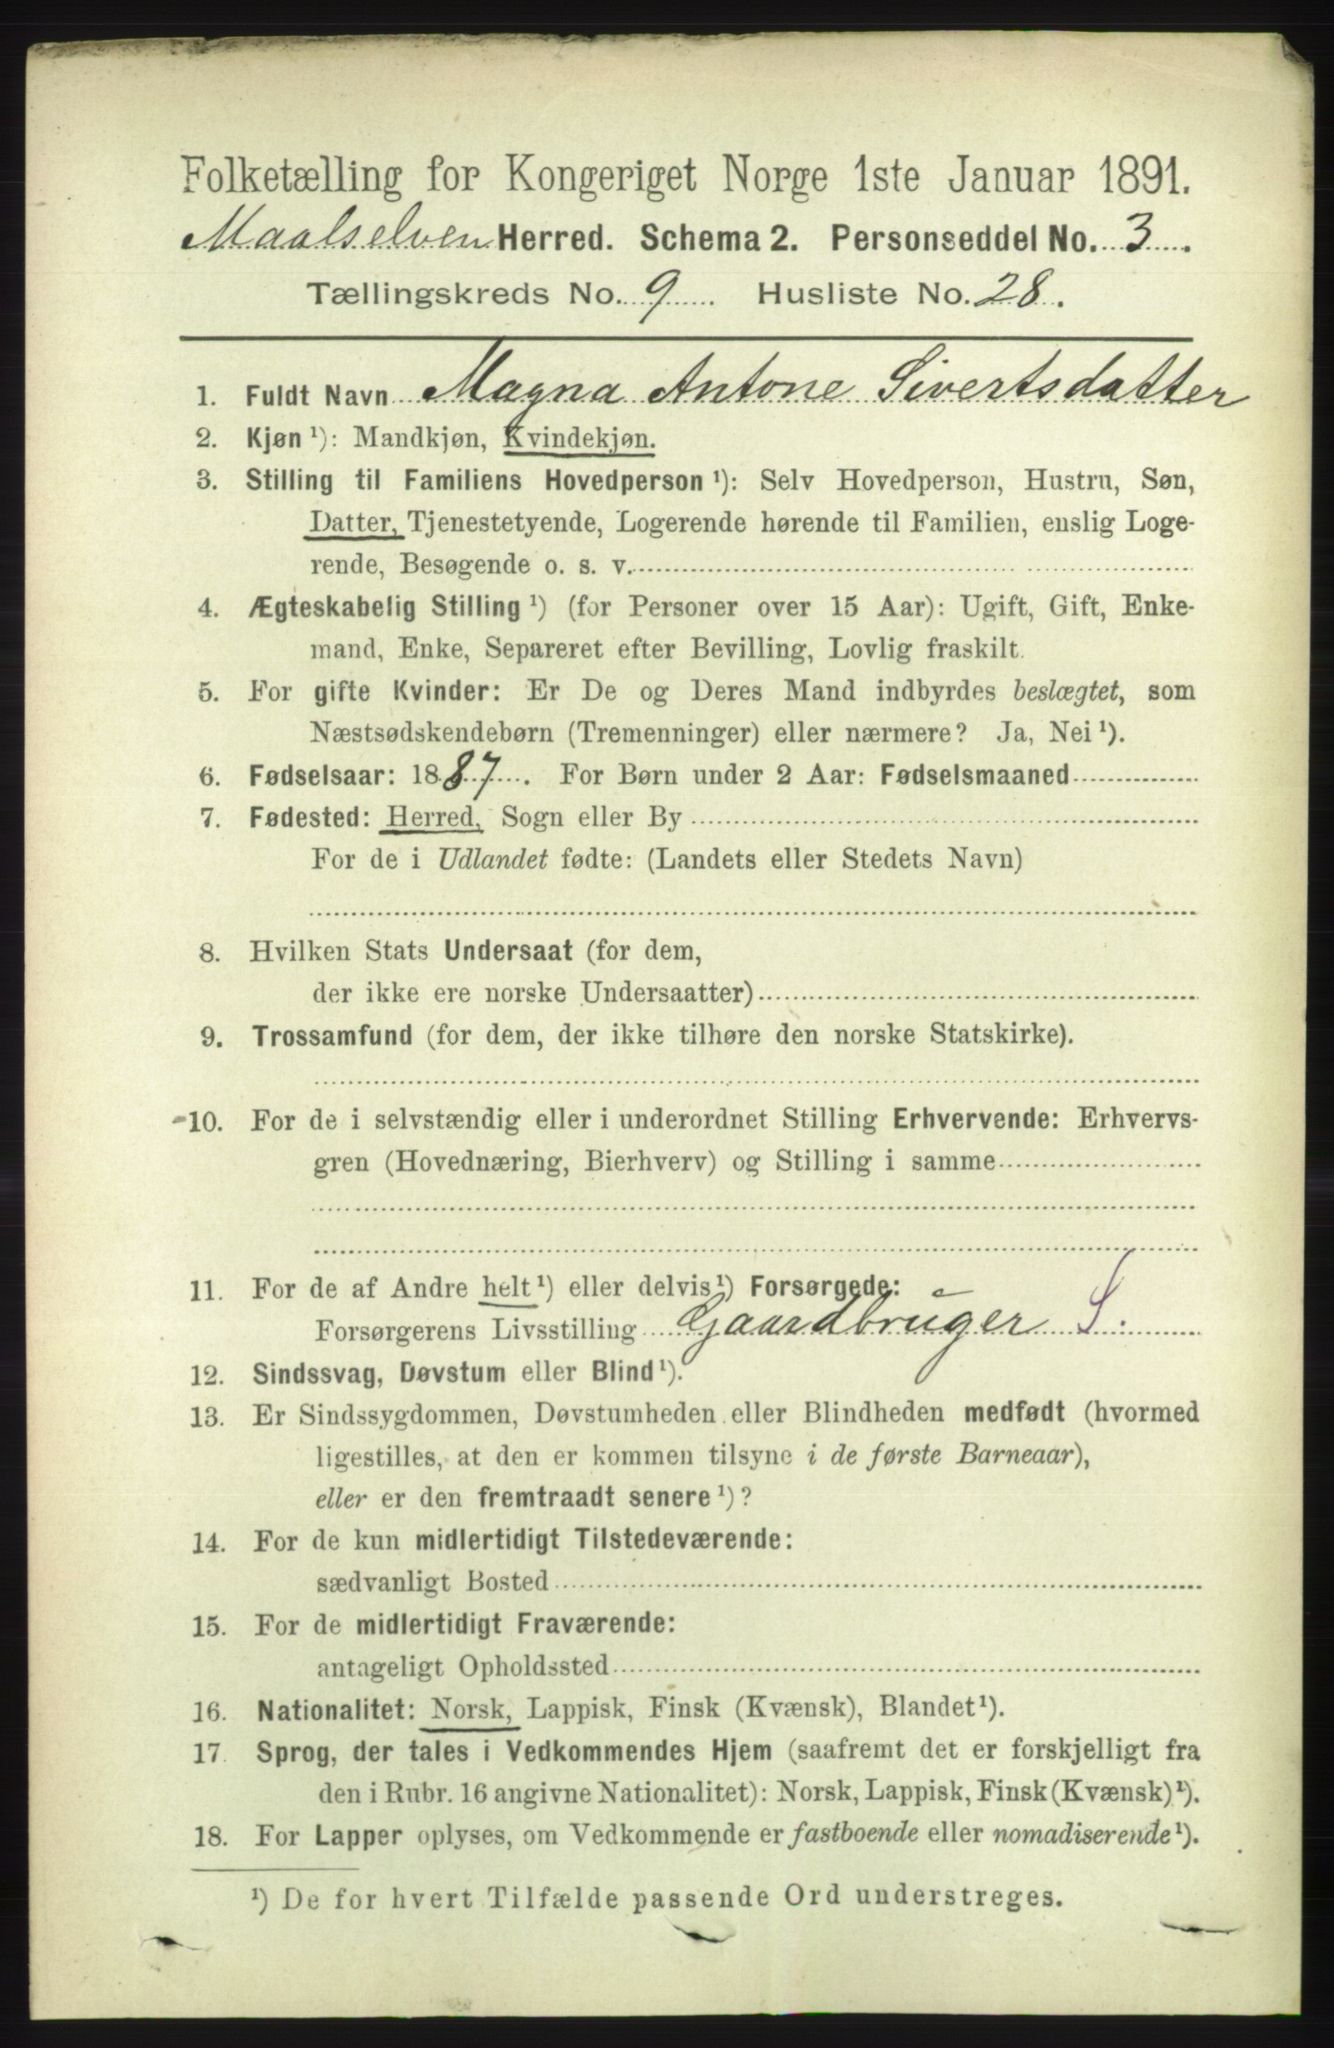 Folketælling for Kongeriget Norge 1ste Januar 1891.
Maalselven Herred. Schema 2. Personseddel No. 3.
Tællingskreds No. 9. Husliste No. 28.
1. Fuldt Navn Magna Antone Sivertsdatter
2. Kjøn ¹): Mandkjøn, Kvindekjøn.
3. Stilling til Familiens Hovedperson ¹): Selv Hovedperson, Hustru, Søn,
Datter, Tjenestetyende, Logerende hørende til Familien, enslig Loge-
rende, Besøgende o. s. v.
4. Ægteskabelig Stilling ¹) (for Personer over 15 Aar): Ugift, Gift, Enke-
mand, Enke, Separeret efter Bevilling, Lovlig fraskilt.
5. For gifte Kvinder: Er De og Deres Mand indbyrdes beslægtet, som
Næstsødskendebørn (Tremenninger) eller nærmere? Ja, Nei ¹).
6. Fødselsaar: 1887. For Børn under 2 Aar: Fødselsmaaned
7. Fødested: Herred, Sogn eller By
For de i Udlandet fødte: (Landets eller Stedets Navn)
8. Hvilken Stats Undersaat (for dem,
der ikke ere norske Undersaatter)
9. Trossamfund (for dem, der ikke tilhøre den norske Statskirke).
10. For de i selvstændig eller i underordnet Stilling Erhvervende: Erhvervs-
gren (Hovednæring, Bierhverv) og Stilling i samme
11. For de af Andre helt ¹) eller delvis ¹) Forsørgede:
Forsørgerens Livsstilling Gaardbruger S.
12. Sindssvag, Døvstum eller Blind ¹).
13. Er Sindssygdommen, Døvstumheden eller Blindheden medfødt (hvormed
ligestilles, at den er kommen tilsyne i de første Barneaar),
eller er den fremtraadt senere ¹)?
14. For de kun midlertidigt Tilstedeværende:
sædvanligt Bosted
15. For de midlertidigt Fraværende:
antageligt Opholdssted
16. Nationalitet: Norsk, Lappisk, Finsk (Kvænsk), Blandet ¹).
17. Sprog, der tales i Vedkommendes Hjem (saafremt det er forskjelligt fra
den i Rubr. 16 angivne Nationalitet): Norsk, Lappisk, Finsk (Kvænsk) ¹).
18. For Lapper oplyses, om Vedkommende er fastboende eller nomadiserende ¹).
¹) De for hvert Tilfælde passende Ord understreges.